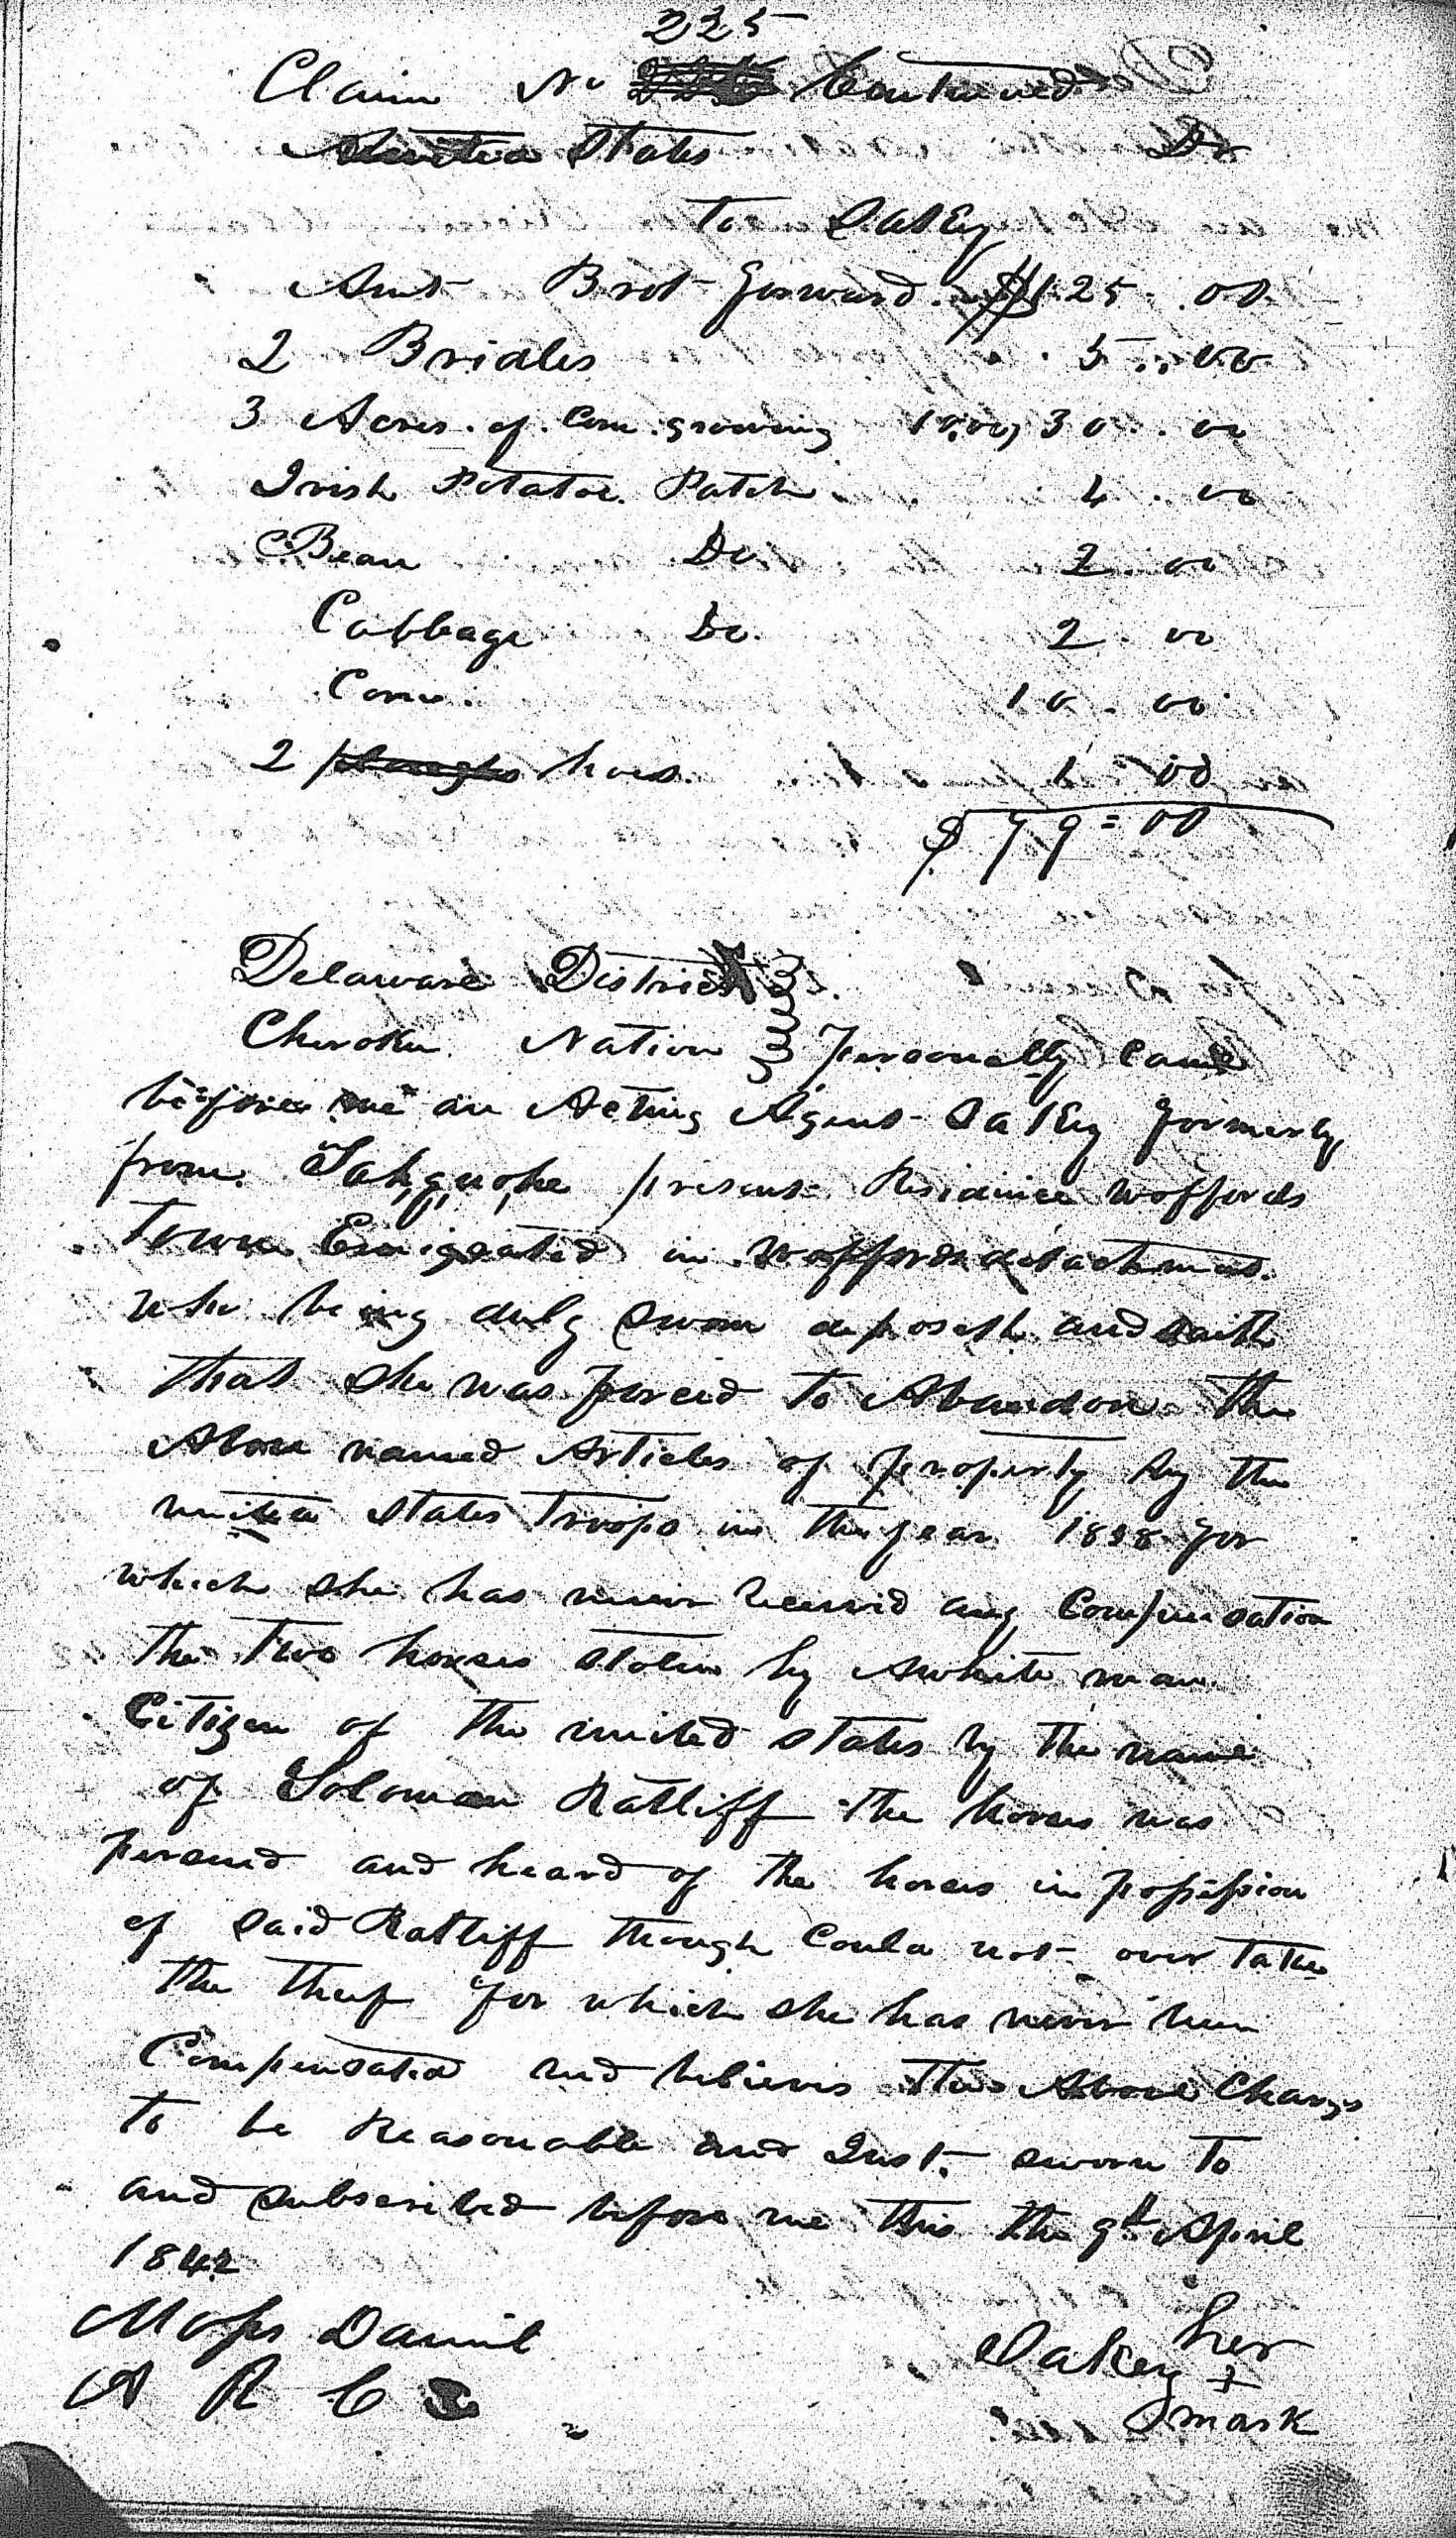 225
Claim No Continued
United States Dr
To Dakey
Amt Brot forward $ 25 . 00
2 Bridles 5 .. 00
3 Acres of Corn growing 10,00, 30 . 00
Irish Potatoe Patch 4 . 00
Bean Do. 2 . 00
Cabbage Do. 2 . 00
Corn 10 . 00
2 hoes. 1 00
$ 79 = 00
Delaware District
Cherokee Nation Personally came
before me an Acting Agent Dakey formerly
from present Residince Woffords
Town Emigrated in Woffords detachment.
who being duly sworn deposeth and saith
that she was forced to Abandon the
Above named Articles of property by the
united States Troops in the year 1838 for
which she has never Received any Compensation
the Two horses stolen by a white man
Citizen of the united states by the name
of Soloman Ratliff the horses was
persued and heard of the horses in possession
of said Ratliff though Could not over take
the theif for which she has never been
Compensated and believes the Above Charges
to be Reasonable and Just. sworn to
and subscribed before me this the 9th April
1842
Moses Daniel
A R C
her
Dakey +
mark